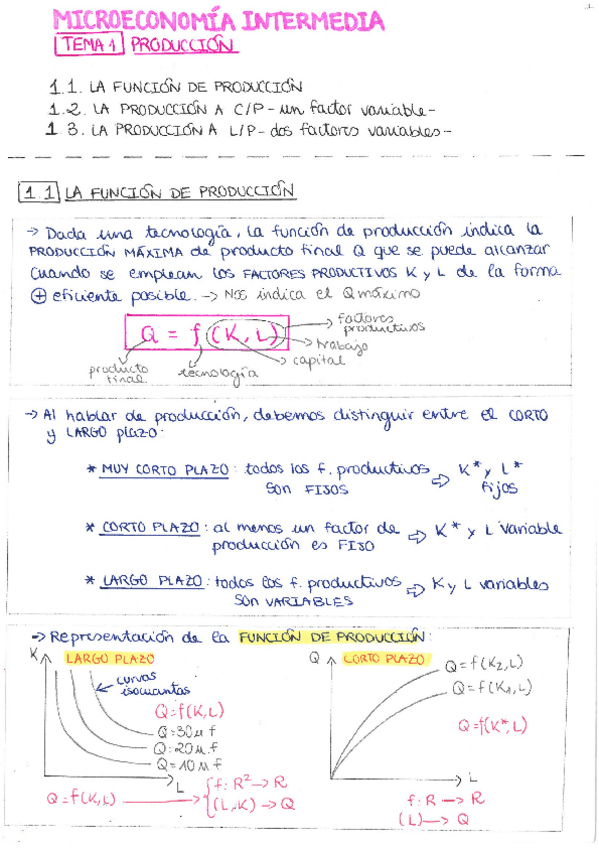 MICROECONOMÍA INTERMEDIA
TEMA 1 PRODUCCIÓN
1.1. LA FUNCIÓN DE PRODUCCIÓN
1.2. LA PRODUCCIÓN A C/P - un factor variable -
1.3. LA PRODUCCIÓN A L/P - dos factores variables -
1.1 LA FUNCIÓN DE PRODUCCIÓN
→ Dada una tecnología, la función de producción indica la
PRODUCCIÓN MÁXIMA de producto final Q que se puede alcanzar
cuando se emplean los FACTORES PRODUCTIVOS K y L de la forma
⊕ eficiente posible. → Nos indica el Q máximo
Q = f (K, L)
factores
productivos
trabajo
capital
producto
final
tecnología
→ Al hablar de producción, debemos distinguir entre el CORTO
y LARGO plazo:
* MUY CORTO PLAZO: todos los f. productivos ⇨ K* y L*
SON FIJOS fijos
* CORTO PLAZO: al menos un factor de ⇨ K* y L variable
producción es FIJO
* LARGO PLAZO: todos los f. productivos ⇨ K y L variables
SON VARIABLES
→ Representación de la FUNCIÓN DE PRODUCCIÓN:
K LARGO PLAZO
curvas
isocuantas
Q=f(K,L)
Q=30 u.f
Q=20 u.f
Q=10 u.f
L
Q=f(K,L) → f: R² → R
(L,K) → Q
Q CORTO PLAZO
Q=f(K₂,L)
Q=f(K₁,L)
Q=f(K*,L)
L
f: R → R
(L) → Q